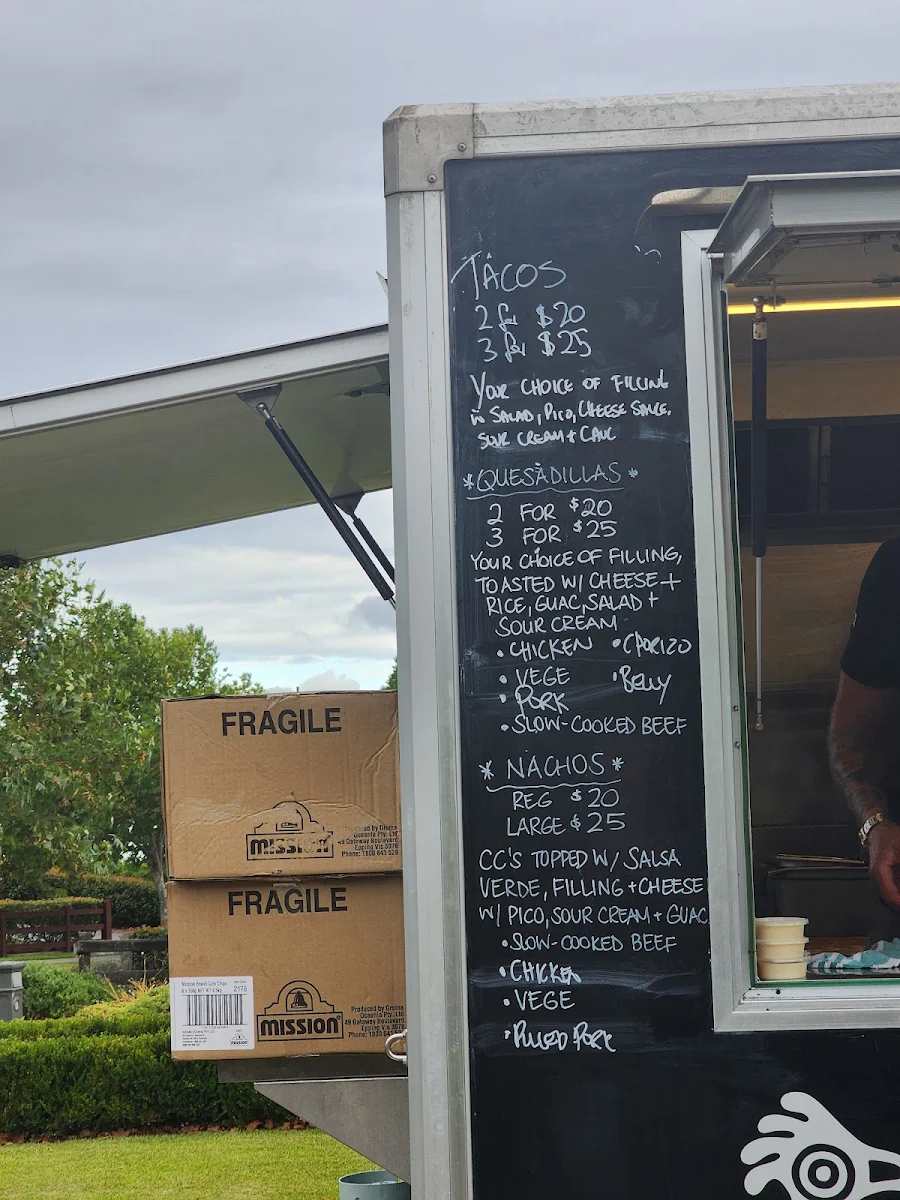 TACOS
2 for $20
3 for $25
YOUR CHOICE OF FILLING
W SALAD, PICO, CHEESE SAUCE,
SOUR CREAM + GUAC
*QUESADILLAS*
2 FOR $20
3 FOR $25
YOUR CHOICE OF FILLING,
TOASTED W/ CHEESE +
RICE, GUAC, SALAD +
SOUR CREAM
• CHICKEN • CHORIZO
• VEGE • BELLY
• PORK
• SLOW-COOKED BEEF
* NACHOS *
REG $20
LARGE $25
CC'S TOPPED W/ SALSA
VERDE, FILLING + CHEESE
W/ PICO, SOUR CREAM + GUAC
• SLOW-COOKED BEEF
• CHICKEN
• VEGE
• PULLED PORK
FRAGILE
MISSION
Produced by Gruma
Oceania Pty. Ltd
49 Gateway Boulevard
Epping Vic 3076
Phone: 1800 641 529
FRAGILE
2175
MISSION
Produced by Gruma
Oceania Pty. Ltd
49 Gateway Boulevard
Epping Vic 3076